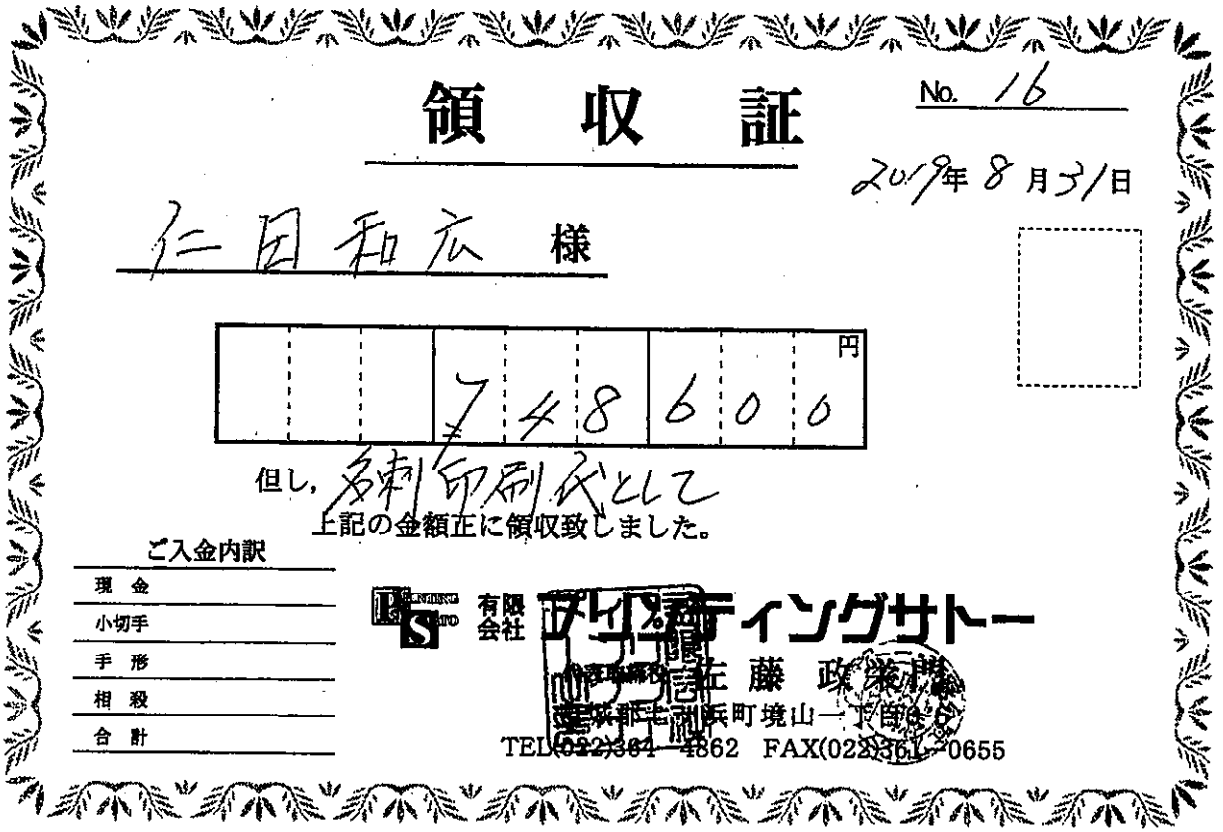 領収証
No. 16
2019年8月31日
仁田和広 様
円
748600
但し, 名刺印刷代として
上記の金額正に領収致しました。
ご入金内訳
現金
小切手
手形
相殺
合計
PS
有限会社 プリンティングサトー
代表取締役 佐藤 政
浜町境山一丁目
TEL(022)364-4862 FAX(022)361-0655